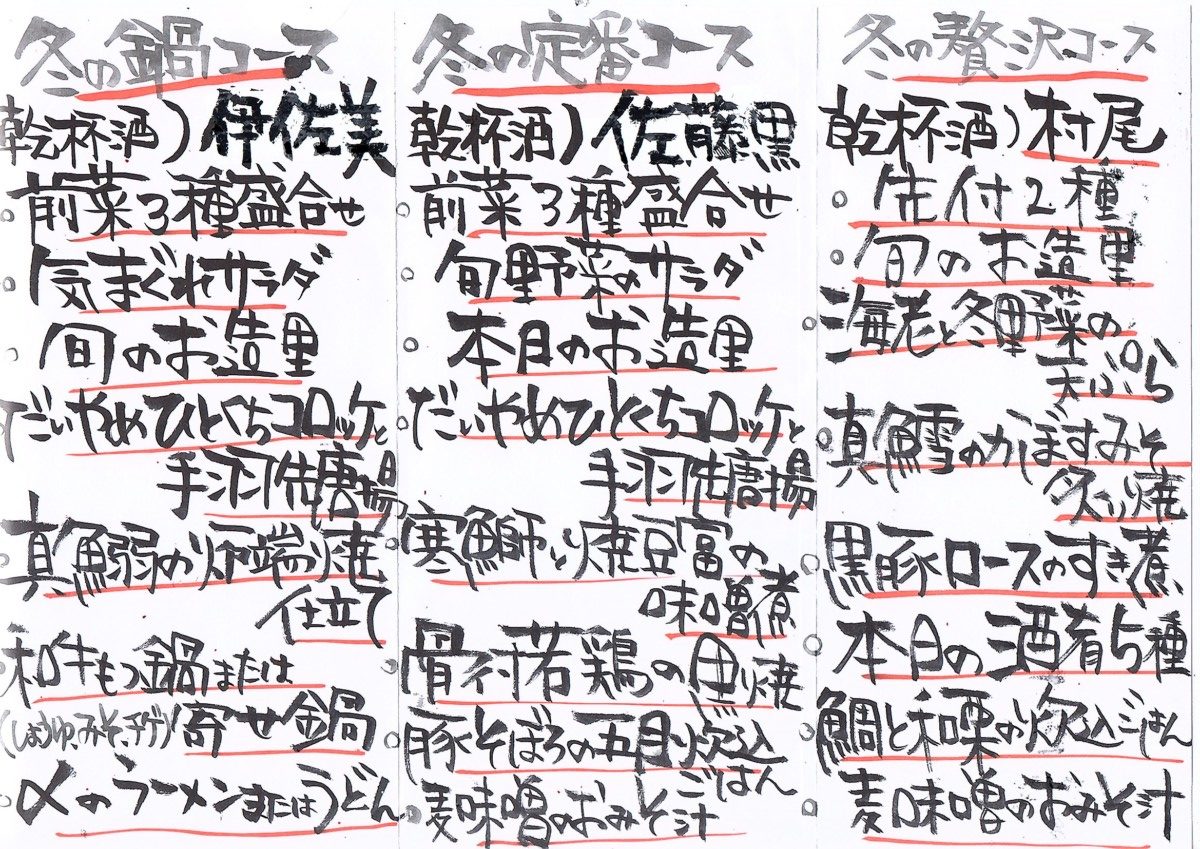 冬の鍋コース
乾杯酒)伊佐美
前菜3種盛合せ
気まぐれサラダ
旬のお造里
だいやめひとくちコロッケと
手羽先唐揚
真鰯の炉端焼
仕立て
和牛もつ鍋または
(しょうゆ、みそ、チゲ)寄せ鍋
〆のラーメンまたはうどん
冬の定番コース
乾杯酒)佐藤黒
前菜3種盛合せ
旬野菜のサラダ
本日のお造里
だいやめひとくちコロッケと
手羽先唐揚
寒鰤と焼豆富の
味噌煮
骨付若鶏の黒焼
豚そぼろの五目炊込
ごはん
麦味噌のおみそ汁
冬の贅沢コース
乾杯酒)村尾
先付2種
旬のお造里
海老と冬野菜の
天ぷら
真鱈のかぼすみそ
炙り焼
黒豚ロースのすき煮
本日の酒肴5種
鯛と和栗の炊込ごはん
麦味噌のおみそ汁